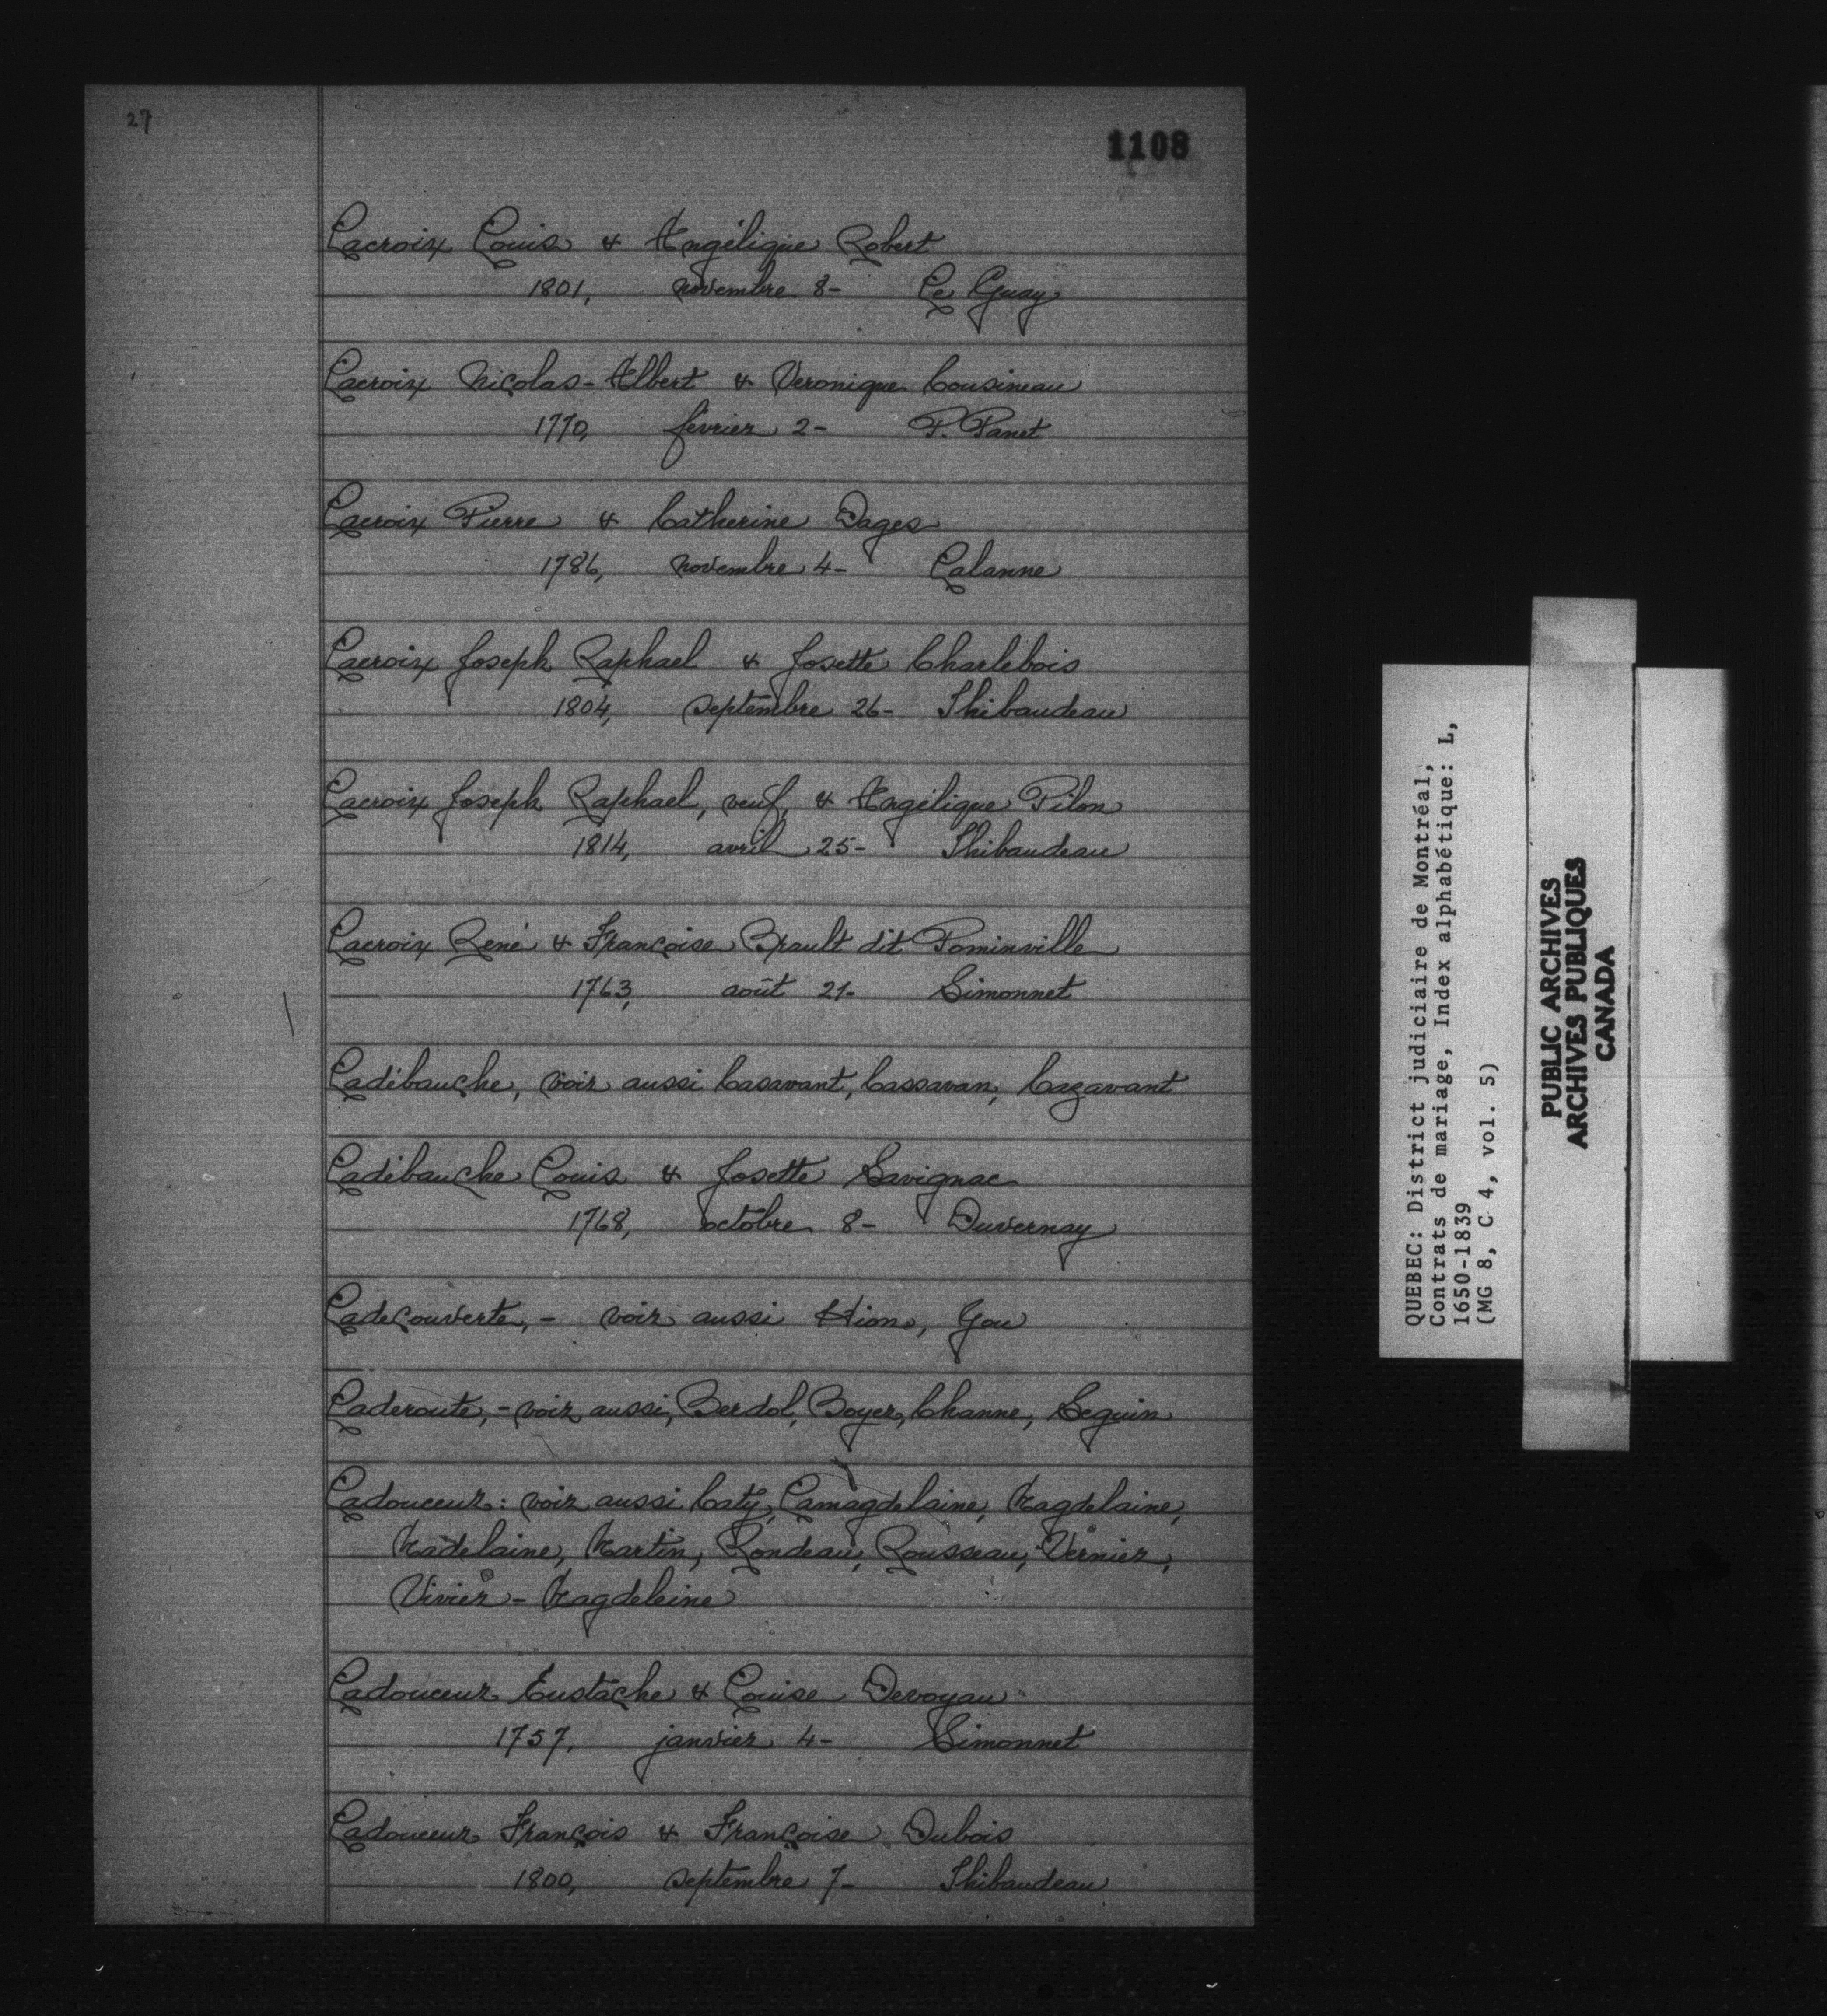 27
1108
Lacroix Louis & Angélique Robert
1801, novembre 8- Le Guay
Lacroix Nicolas-Albert & Veronique Cousineau
1770, février 2- P. Panet
Lacroix Pierre & Catherine Dages
1786, novembre 4- Lalanne
Lacroix Joseph Raphael & Josette Charlebois
1804, septembre 26- Thibaudeau
Lacroix Joseph Raphael, veuf, & Angélique Pilon
1814, avril 25- Thibaudeau
Lacroix René & Françoise Brault dit Pominville
1763, août 21- Simonnet
Ladébauche, voir aussi Casavant, Cassavan, Cazavant
Ladébauche Louis & Josette Savignac
1768, octobre 8- Duvernay
Ladecouverte,- voir aussi Hion, You
Laderoute,- voir aussi, Berdol, Boyer, Channe, Seguin
Ladouceur: voir aussi Caty, Lamagdelaine, Magdelaine,
Madelaine, Martin, Rondeau, Rousseau, Vernier,
Vivier- Magdeleine
Ladouceur Eustache & Louise Devoyau
1757, janvier 4- Simonnet
Ladouceur François & Françoise Dubois
1800, septembre 7- Thibaudeau
QUEBEC: District judiciaire de Montréal,
Contrats de mariage, Index alphabétique: L,
1650-1839
(MG 8, C 4, vol. 5)
PUBLIC ARCHIVES
ARCHIVES PUBLIQUES
CANADA